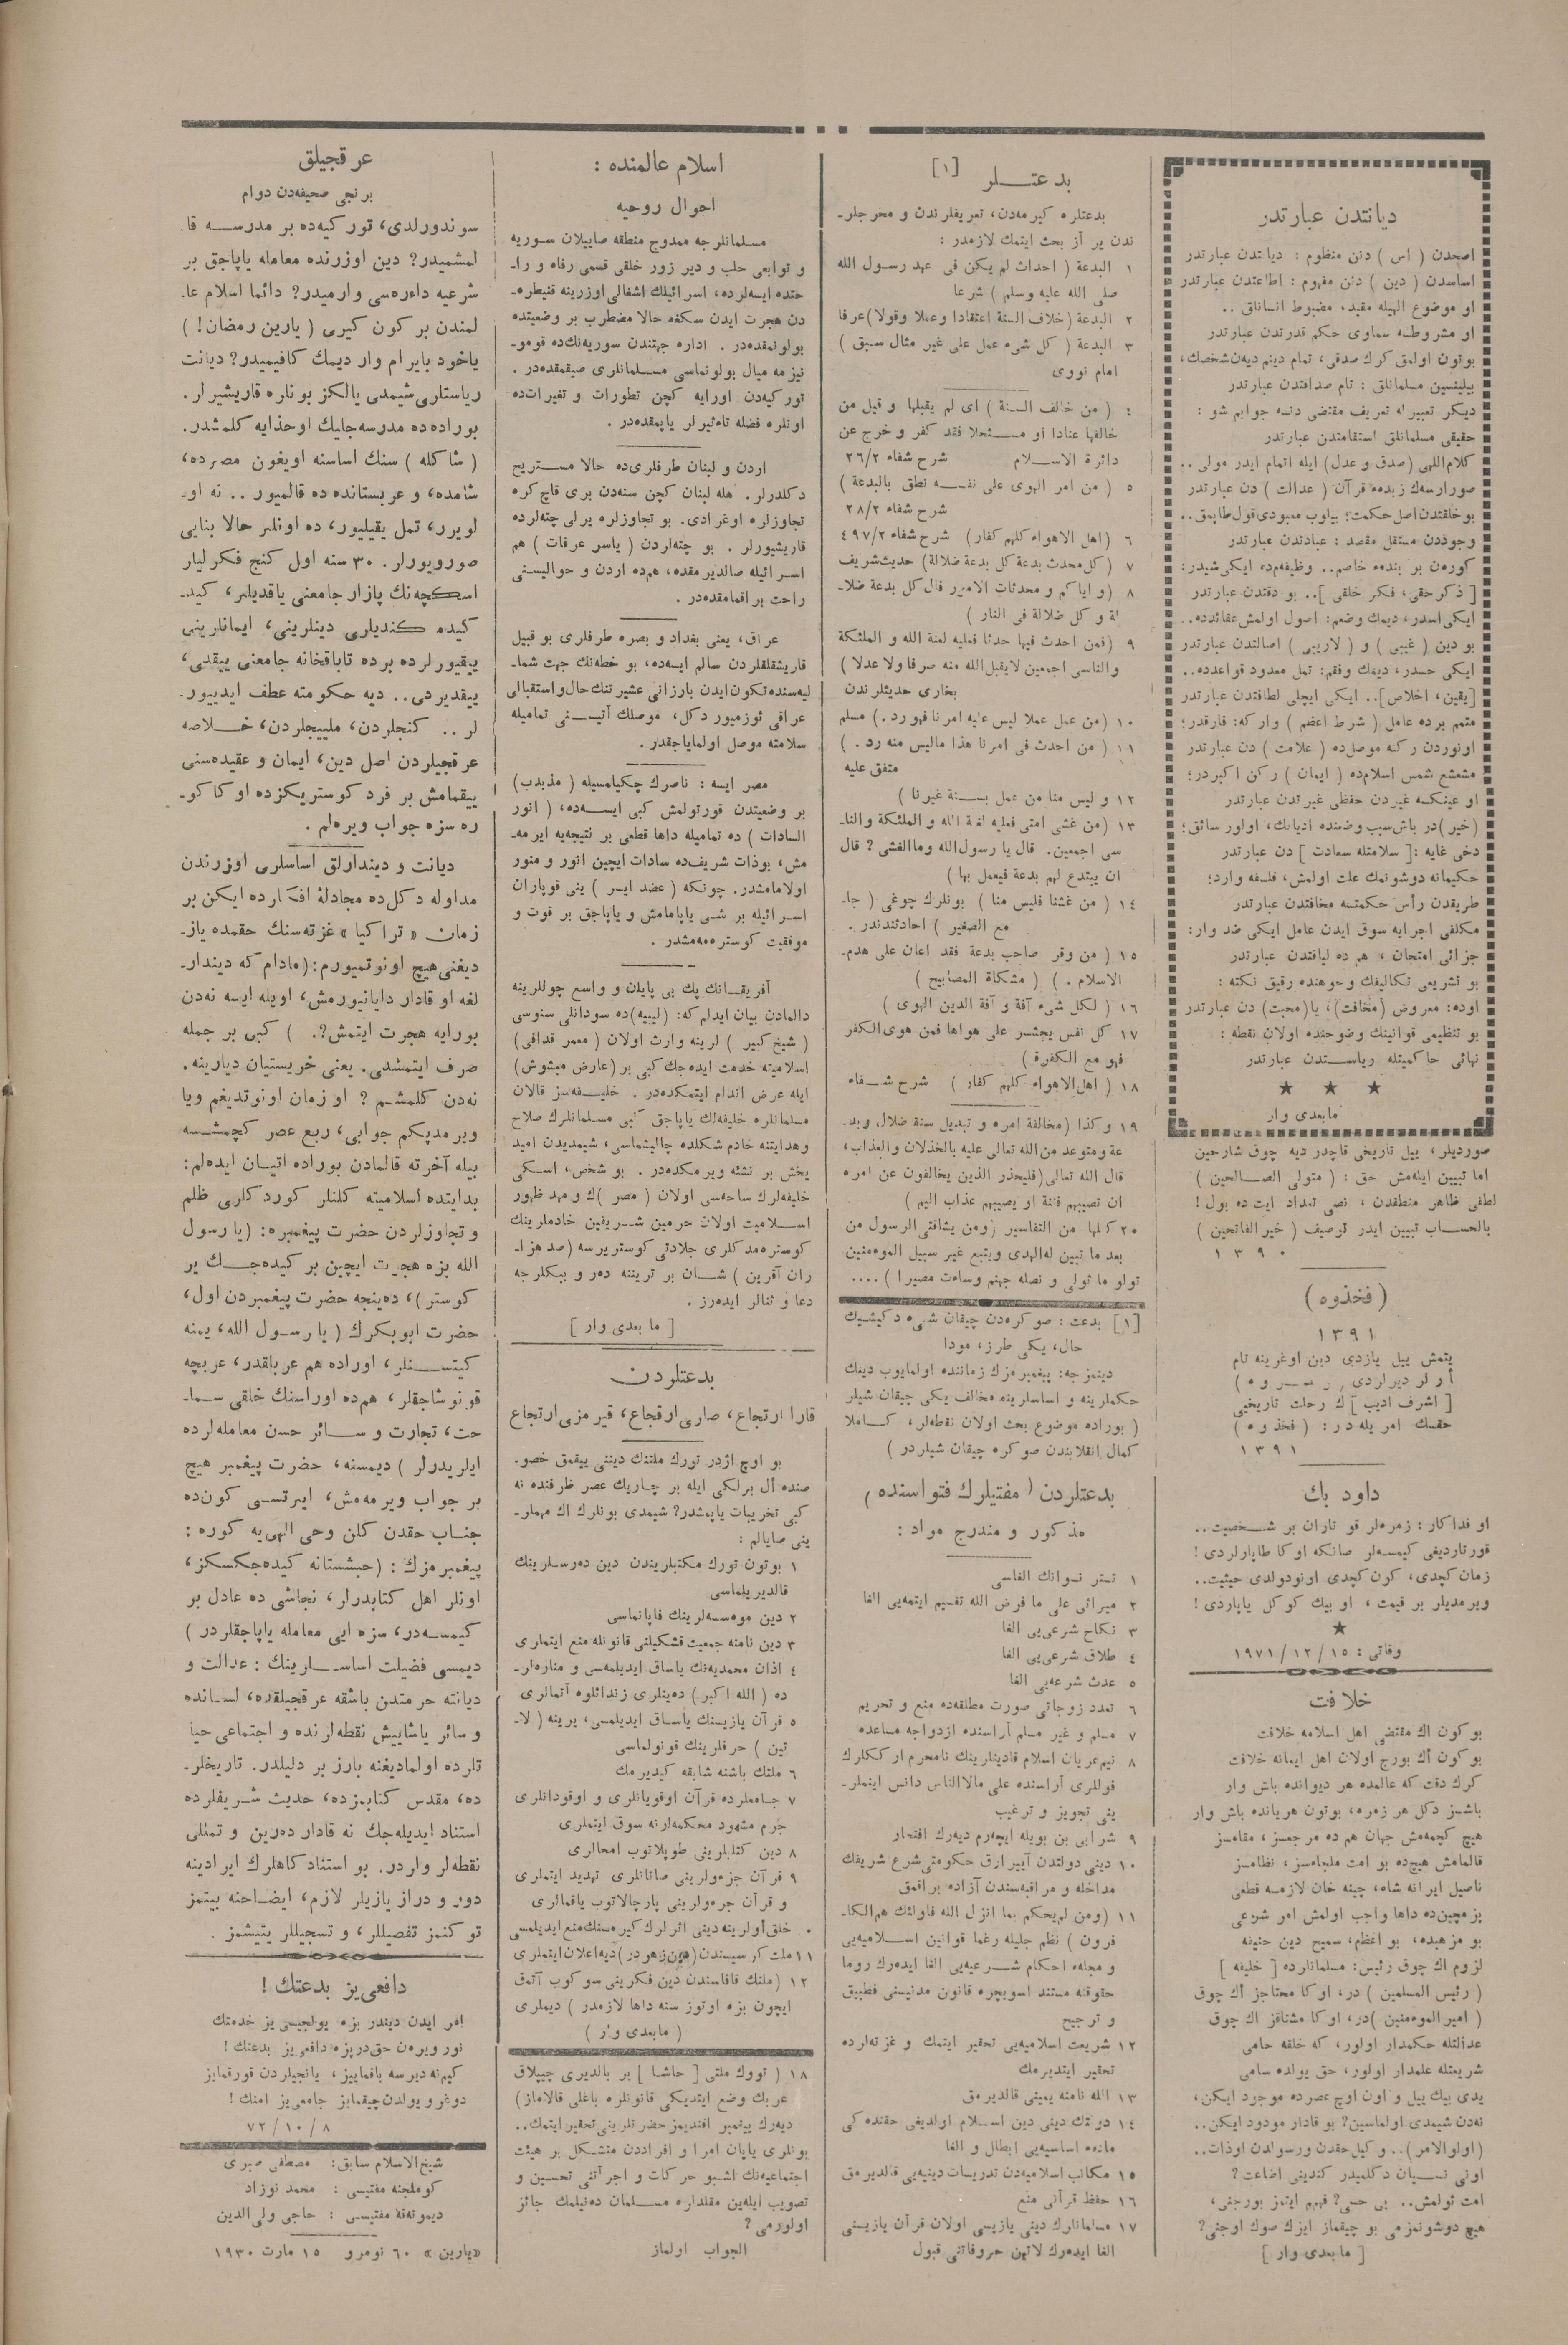 ديانتدن عبارتدر
اصحدن ( اس ) دن منظوم : ديانتدن عبارتدر
اساسدن ( دين ) دن مفهوم : اطاعتدن عبارتدر
او موضوع الهيله مقيد، مضبوط انسانلق ..
او مشروطه سماوى حكم قدرتدن عبارتدر
بوتون اولمق كرك صدقى، تمام دينم ديەن شخصك،
بيلينسين مسلمانلق : تام صداقتدن عبارتدر
ديكر تعبيرله تعريف مقتضى دنسه جوابم شو :
حقيقى مسلمانلق استقامتدن عبارتدر
كلام اللهى (صدق و عدل) ايله اتمام ايدر مولى ..
صورارسەك زبدەء قرآن ( عدالت ) دن عبارتدر
بو خلقتدن اصل حكمت؟ بيلوب معبودى قول طاپمق..
وجوددن مستقل مقصد : عبادتدن عبارتدر
كورەن بر بندەء خاصم.. وظيفەم ده ايكى شيدر:
[ ذكر حقى، فكر خلقى ].. بو دقتدن عبارتدر
ايكى اسدر، ديمك وضعم: اصول اولمش عقائدده..
بو دين ( غيبى ) و ( لاريبى ) اصالتدن عبارتدر
ايكى حسدر، ديمك وقفم: تمل معدود قواعدده..
[يقين، اخلاص].. ايكى ايچلى لطافتدن عبارتدر
متمم برده عامل ( شرط اعضم ) واركه: فارقدر؛
اونوردن ركنه موصلده ( علامت ) دن عبارتدر
مشعشع شمس اسلامده ( ايمان ) ركن اكبردر؛
او عينكه غيردن حفظى غيرتدن عبارتدر
(خير)در باش سبب وضعنده اديانك، اولور سائق؛
دخى غايه :[ سلامتله سعادت ] دن عبارتدر
حكيمانه دوشونمك علت اولمش، فلسفه وارد؛
طريقدن رأس حكمتسه مخافتدن عبارتدر
مكلفى اجرايه سوق ايدن عامل ايكى ضد وار:
جزائى امتحان ، هم ده لياقتدن عبارتدر
بو تشريعى تكاليفك وجوهنده رقيق نكته :
اوده: معروض (مخافت)، يا(محبت) دن عبارتدر
بو تنظيمى قوانينك وضوحنده اولان نقطه :
نهائى حاكميتله رياستدن عبارتدر
★ ★ ★
مابعدى وار
صورديلر، ييل تاريخى قاچدر ديه چوق شارحين
اما تبيين ايلەمش حق : ( متولى الصالحين )
لطفى ظاهر منطقدن ، نصى تعداد ايت ده بول !
بالحساب تبيين ايدر ترصيف ( خير الفاتحين )
١٣٩٠
( فخذوه )
١٣٩١
يتمش ييل يازدى دين اوغرينه تام
[ اشرف اديب ] ك رحلت تاريخيى
حقسك امريله در : ( فخذوه )
١٣٩١
داود بك
او فداكار: زمره‌لر قوتاران بر شخصيت..
قورتارديغى كيمسه‌لر صانكه اوكا طاپارلردى !
زمان كچدى، كون كچدى اونودولدى حيثيت..
ويرمديلر بر قيمت ، او بيك كوكل ياپاردى !
★
وفاتى : ١٥/ ١٢/ ١٩٧١
خلافت
بو كون اك مقتضى اهل اسلامه خلافت
بو كون اك بورج اولان اهل ايمانه خلافت
كرك دقت كه عالمده هر ديوانده باش وار
باشسز دكل هر زمره، بوتون هريانده باش وار
هيچ كچمه‌مش جهان هم ده مرجعسز ، مقامسز
قالمامش هيچ ده بو امت ملجاءسز ، نظامسز
ناصيل ايرانه شاه، چينه خان لازمسه قطعى
بزمچين ده داها واجب اولمش امر شرعى
بو مزهبده، بو اعظم، سميح دين حنيفه
لزوم اك چوق رئيس: مسلمانلرده [ خليفه ]
( رئيس المسلمين ) در، اوكا محتاجز اك چوق
( امير المومنين )در، اوكا مشتاقز اك چوق
عدالتله حكمدار اولور، كه خلقه حامى
شريعتله علمدار اولور، حق يولده سامى
يدى بيك ييل و اون اوچ عصرده موجود ايكن،
نه‌دن شيمدى اولماسين؟ بو قادار مودود ايكن..
(اولو الامر).. وكيل حقدن ورسولدن اوذات..
اونى نسيان دكلميدر كندينى اضاعت؟
امت ئولمش.. بى حسى؟ فهم ايتمز بورجنى،
هيچ دوشونمزمى بو چيقماز ايزك صوك اوجنى؟
[ مابعدى وار ]
بدعتلر [١]
بدعتلره كيرمه‌دن، تعريفلرندن و مخرجلر-
ندن بر آز بحث ايتمك لازمدر :
١ البدعة ( احداث لم يكن فى عهد رسول الله
صلى الله عليه وسلم ) شرعا
٢ البدعة (خلاف السنة اعتقادا وعملا وقولا)عرفا
٣ البدعة ( كل شىء عمل على غير مثال سبق )
امام نووى
٤ ( من خالف السنة ) اى لم يقبلها و قيل من
خالفها عنادا او مستحلا فقد كفر و خرج عن
دائرة الاسلام شرح شفاء ٢٦/٢
٥ ( من امر الهوى على نفسه نطق بالبدعة )
شرح شفاء ٢٨/٢
٦ (اهل الاهواء كلهم كفار) شرح شفاء ٤٩٧/٢
٧ ( كل محدث بدعة كل بدعة ضلالة) حديث شريف
٨ (و اياكم و محدثات الامور فان كل بدعة ضلا-
لة و كل ضلالة فى النار )
٩ (فمن احدث فيها حدثا فعليه لعنة الله و الملئكة
والناس اجمعين لايقبل الله منه صرفا ولا عدلا )
بخارى حديثلرندن
١٠ (من عمل عملا ليس عليه امرنا فهو رد.) مسلم
١١ ( من احدث فى امرنا هذا ماليس منه رد. )
متفق عليه
١٢ و ليس منا من عمل بسنة غيرنا )
١٣ (من غشى امتى فعليه لعنة الله و الملئكة والنا-
س اجمعين. قال يا رسول الله وما الغش؟ قال
ان يبتدع لهم بدعة فيعمل بها )
١٤ ( من غشنا فليس منا ) بونلرك چوغى ( جا-
مع الصغير ) احاديثندندر .
١٥ ( من وقر صاحب بدعة فقد اعان على هدم-
الاسلام . ) ( مشكاة المصابيح )
١٦ ( لكل شىء آفة و آفة الدين الهوى )
١٧ كل نفس يحشر على هواها فمن هوى الكفر
فهو مع الكفرة )
١٨ ( اهل الاهواء كلهم كفار ) شرح شفاء
١٩ وكذا (مخالفة امره و تبديل سنة ضلال وبد-
عة ومتوعد من الله تعالى عليه بالخذلان والعذاب،
قال الله تعالى(فليحذر الذين يخالفون عن امره
ان تصيبهم فتنة او يصيبهم عذاب اليم )
٢٠ كلها من التفاسير (ومن يشاقق الرسول من
بعد ما تبين له الهدى ويتبع غير سبيل الموءمنين
نولو ما تولى و نصله جهنم وساءت مصيرا ) ....
[١] بدعت : صوكره‌دن چيقان شىء دكيشيك
حال، يكى طرز، مودا
دينمزجه: پيغمبرمزك زماننده اولمايوب دينك
حكملرينه و اساسلرينه مخالف يكى چيقان شيلر
( بوراده موضوع بحث اولان نقطه‌لر، كاملا
كمال انقلابندن صوكره چيقان شيلردر )
بدعتلردن ( مفتيلرك فتواسنده )
مذكور و مندرج مواد :
١ تستر نسوانك الغاسى
٢ ميراثى على ما فرض الله تقسيم ايتمه‌يى الغا
٣ نكاح شرعى‌يى الغا
٤ طلاق شرعى‌يى الغا
٥ عدت شرعيه‌يى الغا
٦ تعدد زوجاتى صورت مطلقه‌ده منع و تحريم
٧ مسلم و غير مسلم آراسنده ازدواجه مساعده
٨ نيم عريان اسلام قادينلرينك نامحرم ارككلرك
قوللرى آراسنده على ملاالناس دانس ايتملر-
ينى تجويز و ترغيب
٩ شرابى بن بويله ايچه‌رم ديه‌رك افتخار
١٠ دينى دولتدن آييرارق حكومتى شرع شريفك
مداخله و مراقبه‌سندن آزاده براقمق
١١ (ومن لم يحكم بما انزل الله فاولئك هم الكا-
فرون ) نظم جليله رغما قوانين اسلاميه‌يى
و مجله احكام شرعيه‌يى الغا ايده‌رك روما
حقوقنه مستند اسويچره قانون مدنيسنى تطبيق
و ترجيح
١٢ شريعت اسلاميه‌يى تحقير ايتمك و غزته‌لرده
تحقير ايتديرمك
١٣ الله نامنه يمينى قالديرمق
١٤ دولتك دينى دين اسلام اولديغى حقنده كى
ماده اساسيه‌يى ابطال و الغا
١٥ مكاتب اسلاميه‌دن تدريسات دينيه‌يى قالديرمق
١٦ حفظ قرآنى منع
١٧ مسلمانلرك دينى يازيسى اولان قرآن يازيسنى
الغا ايده‌رك لاتين حروفاتنى قبول
اسلام عالمنده :
احوال روحيه
مسلمانلرجه ممدوح منطقه صاييلان سوريه
و توابعى حلب و دير زور خلقى قسمى رفاه و را-
حتده ايسه‌لرده، اسرائيلك اشغالى اوزرينه قنيطره-
دن هجرت ايدن سكنه حالا مضطرب بر وضعيتده
بولونمقده‌در . اداره جهتندن سوريه‌نك‌ده قومو-
نيزمه ميال بولونماسى مسلمانلرى صيقمقده‌در .
توركيه‌دن اورايه كچن تطورات و تغيرات‌ده
اونلره فضله تاءثيرلر ياپمقده‌در .
اردن و لبنان طرفلرى‌ده حالا مستريح
دكلدرلر . هله لبنان كچن سنه‌دن برى قاچ كره
تجاوزلره اوغرادى. بو تجاوزلره يرلى چته‌لرده
قاريشيورلر . بو چته‌لردن ( ياسر عرفات ) هم
اسرائيله صالديرمقده، هم‌ده اردن و حواليسنى
راحت براقمامقده‌در .
عراق، يعنى بغداد و بصره طرفلرى بو قبيل
قاريشقلقلردن سالم ايسه‌ده، بو خطه‌نك جهت شما-
ليه‌سنده تكون ايدن بارزانى عشيرتنك حال و استقبالى
عراقى ئوزميور دكل، موصلك آتيسنى تماميله
سلامته موصل اولماياجقدر.
مصر ايسه : ناصرك چكيلمسيله ( مذبذب)
بر وضعيتدن قورتولمش كبى ايسه‌ده، ( انور
السادات ) ده تماميله داها قطعى بر نتيجه‌يه ايرمه-
مش، بوذات شريف‌ده سادات ايچين انور و منور
اولامامشدر. چونكه ( عضد ايسر ) ينى قوپاران
اسرائيله بر شى ياپامامش و ياپاجق بر قوت و
موفقيت كوستره‌مه‌مشدر .
آفريقانك پك بى پايان و واسع چوللرينه
دالمادن بيان ايدلم كه: (ليبيه)ده سودانلى سنوسى
( شيخ كبير ) لرينه وارث اولان ( معمر قدافى)
اسلاميته خدمت ايده‌جك كبى بر (عارض مبشوش)
ايله عرض اندام ايتمكده‌در . خليفه‌سز قالان
مسلمانلره خليفه‌لك ياپاجق كبى مسلمانلرك صلاح
وهدايتنه خادم شكلده چاليشماسى، شيمديدن اميد
بخش بر نشئه ويرمكده‌در . بو شخص، اسكى
خليفه‌لرك ساحه‌سى اولان ( مصر )ك و مهد ظهور
اسلاميت اولان حرمين شريفين خادملرينك
كوستره‌مدكلرى جلادتى كوسترير‌سه (صد هزا-
ران آفرين ) شان بر ترينه دەر و بيكلرجه
دعا و ثنالر ايده‌رز .
[ ما بعدى وار ]
بدعتلردن
قارا ارتجاع، صارى ارتجاع، قيرمزى ارتجاع
بو اوچ اژدر تورك ملتنك دينى ييقمق خصو-
صنده ال برلكى ايله بر چاريك عصر ظرفنده نه
كبى تخريبات ياپمشدر؟ شيمدى بونلرك اك مهملر-
ينى صايالم :
١ بوتون تورك مكتبلريندن دين ده‌رسلرينك
قالديريلماسى
٢ دين موءسسه‌لرينك قاپانماسى
٣ دين نامنه جمعيت تشكيلنى قانونله منع ايتملرى
٤ اذان محمديه‌نك ياساق ايديلمه‌سى و مناره‌لر-
ده ( الله اكبر) ده‌ينلرى زندانلوه آتمالرى
٥ قرآن يازيسنك ياساق ايديلمسى، يرينه ( لا-
تين ) حرفلرينك قونولماسى
٦ ملتك باشنه شابقه كيديرمك
٧ جامعلرده قرآن اوقويانلرى و اوقودانلرى
جرم مشهود محكمه‌لرنه سوق ايتملرى
٨ دين كتابلرينى طوپلاتوب امحالرى
٩ قرآن جزءولرينى صاتانلرى تهديد ايتملرى
و قرآن جزءولرينى پارچالاتوب ياقمالرى
. خلق‌اولرينه دينى اثرلرك كيرمسنك منع ايديلمسى
١١ ملت كرسيسندن(دين زهردر)ديه اعلان ايتملرى
١٢ (ملتك قافاسندن دين فكرينى سوكوب آتمق
ايچون بزه اوتوز سنه داها لازمدر ) ديملرى
( مابعدى وار )
١٨ ( تورك ملتى [ حاشا ] بر بالديرى چيپلاق
عربك وضع ايتديكى قانونلره باغلى قالاماز)
ديه‌رك پيغمبر افنديمز حضرتلرينى تحقير ايتمك..
بونلرى ياپان امرا و افراددن متشكل بر هيئت
اجتماعيه‌نك اشبو حركات و اجرآتنى تحسين و
تصويب ايله‌ين مقلدلره مسلمان ده‌نيلمك جائز
اولورمى؟
الجواب اولماز
عرقجيلق
برنجى صحيفه‌دن دوام
سوندورلدى، توركيه‌ده بر مدرسه قا
لمشميدر؟ دين اوزرنده معامله ياپاجق بر
شرعيه داءره‌سى وارميدر؟ دائما اسلام عا-
لمندن بر كون كيرى ( يارين رمضان! )
ياخود بايرام وار ديمك كافيميدر؟ ديانت
رياستلرى شيمدى يالكز بونلره قاريشيرلر.
بوراده‌ده مدرسه‌جيلك اوحذايه كلمشدر.
( شاكله ) سنك اساسنه اويغون مصرده،
شامده، و عربستانده ده قالميور .. نه او-
لويرر، تمل يقيليور، ده اونلر حالا بنايى
صورويورلر. ٣٠ سنه اول كنج فكرليلر
اسكچه‌نك پازار جامعنى ياقديلر، كيد-
كيده كنديلرى دينلرينى، ايمانلرينى
ييقيورلرده برده تاباقخانه جامعنى ييقدى،
ييقديردى.. ديه حكومته عطف ايدييور-
لر .. كنجلردن، ملييجلردن، خلاصه
عرقجيلردن اصل دين، ايمان و عقيده‌سنى
ييقمامش بر فرد كوستريكزده اوكا كو-
ره سزه جواب ويره‌لم .
ديانت و دينداولق اساسلرى اوزرندن
مداوله دكل‌ده مجادلهٔ افكارده ايكن بر
زمان « تراكيا» غزته‌سنك حقمده ياز-
ديغنى هيچ اونوتميورم:(مادام كه ديندار-
لغه او قادار دايانيورمش، اويله ايسه نه‌دن
بورايه هجرت ايتمش؟. ) كبى بر جمله
صرف ايتمشدى. يعنى خريستيان ديارينه.
نه‌دن كلمشم ? او زمان اونوتديغم ويا
ويرمديكم جوابى، ربع عصر كچمشسه
بيله آخرته قالمادن بوراده اتيان ايده‌لم:
بدايتده اسلاميته كلنلر كوردكلرى ظلم
و تجاوزلردن حضرت پيغمبره: (يا رسول
الله بزه هجرت ايچين بر كيده‌جك ير
كوستر)، ده‌ينجه حضرت پيغمبردن اول،
حضرت ابو بكرك ( يا رسول الله، يمنه
كيتسنلر، اوراده هم عرباقدر، عربجه
قونوشاجقلر، هم‌ده اوراسنك خلقى سما-
حت، تجارت و سائر حسن معامله‌لرده
ايلريدرلر ) ديمسنه، حضرت پيغمبر هيچ
بر جواب ويرمه‌مش، ايرتسى كون‌ده
جناب حقدن كلن وحى الهى‌يه كوره :
پيغمبرمزك : (حبشستانه كيده‌جكسكز،
اونلر اهل كتابدرلر، نجاشى ده عادل بر
كيمسه‌در، سزه ايى معامله ياپاجقلردر )
ديمسى فضيلت اساسلرينك : عدالت و
ديانته حرمتدن باشقه عرقجيلقده، لسانده
و سائر ياشاييش نقطه‌لرنده و اجتماعى حيا
تلرده اولماديغنه بارز بر دليلدر. تاريخلر-
ده، مقدس كتابمزده، حديث شريفلرده
استناد ايديله‌جك نه قادار ده‌رين و تمثلى
نقطه‌لر واردر. بو استنادكاهلرك ايرادينه
دور و دراز يازيلر لازم، ايضاحنه بيتمز
توكنمز تفصيللر، و تسجيللر يتيشمز .
دافعى‌يز بدعتك !
امر ايدن ديندر بزه يولجيسى يز خدمتك
نور ويرەن حق‌در بزه دافعى يز بدعتك !
كيم نه ديرسه باقمايز ، يانجيلردن قورقمايز
دوغرو يولدن چيقمايز جامعى يز امتك !
٨ /١٠ /٧٢
شيخ الاسلام سابق: مصطفى صبرى
كوملجنه مفتيسى : محمد نوزاد
ديموته‌قه مفتيسى : حاجى ولى الدين
«يارين» ٦٠ نومرو ١٥ مارت ١٩٣٠